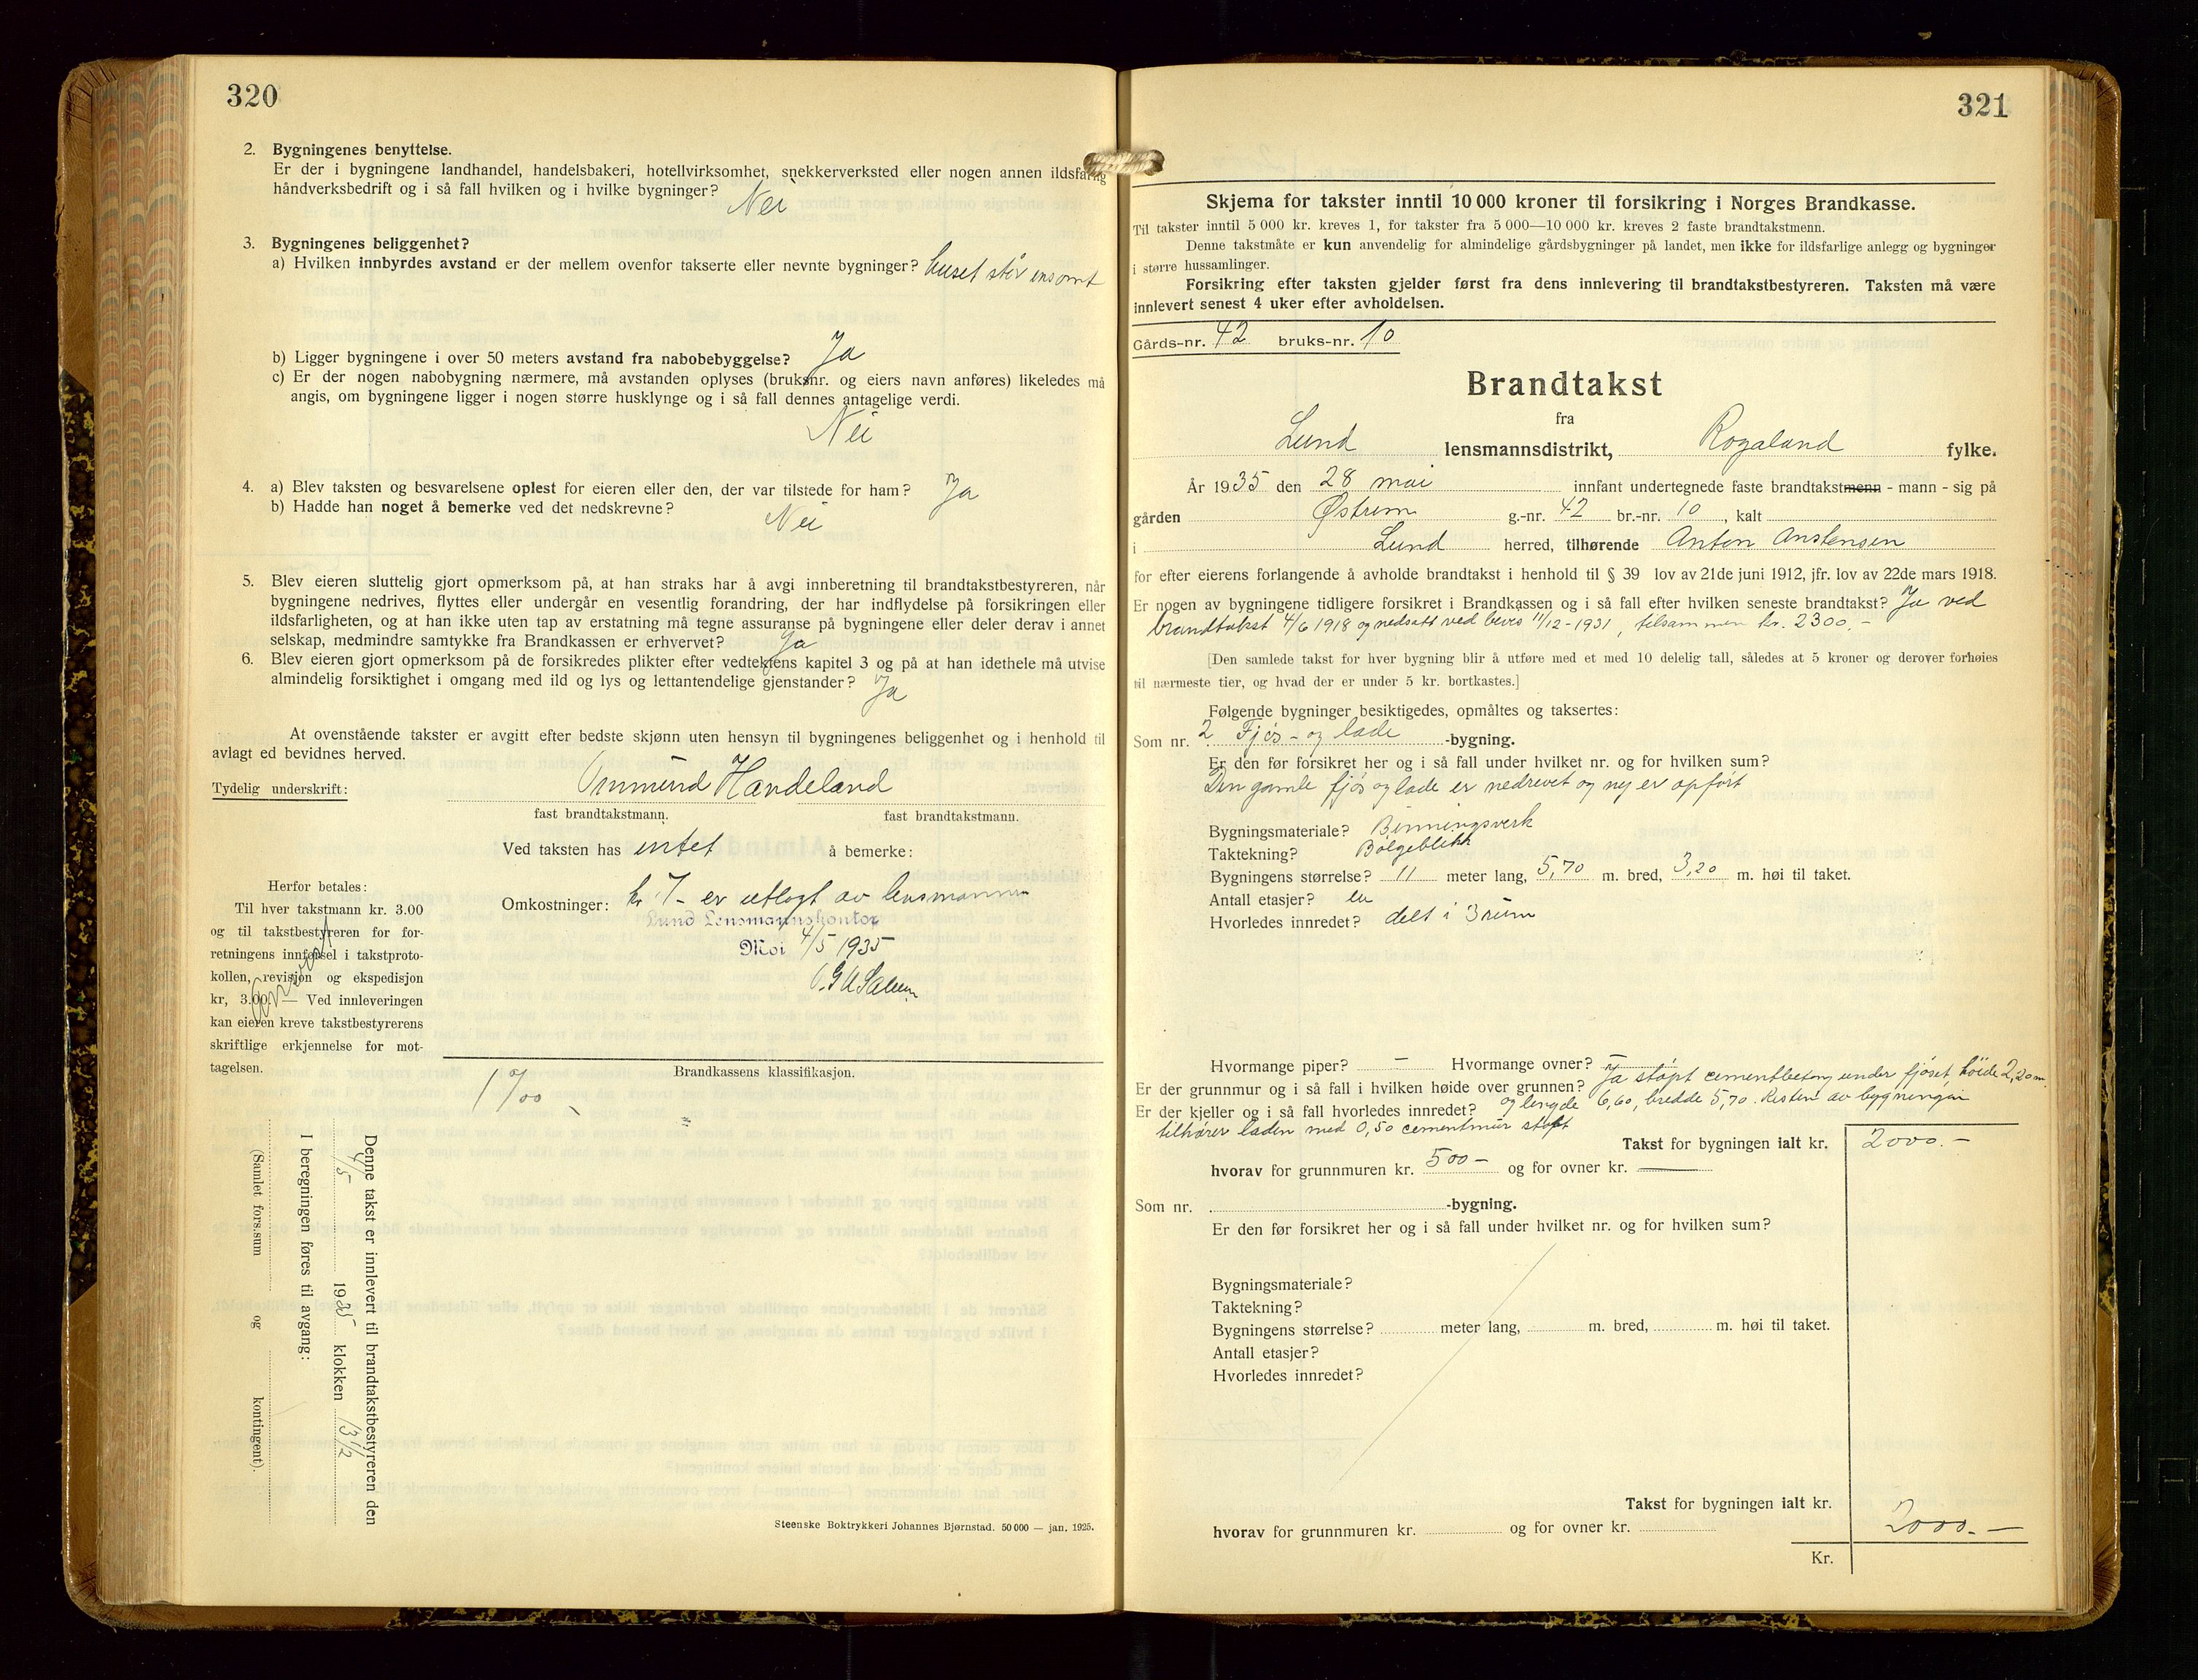 320
2. Bygningenes benyttelse.
Er der i bygningene landhandel, handelsbakeri, hotellvirksomhet, snekkerverksted eller nogen annen ildsfarlig
håndverksbedrift og i så fall hvilken og i hvilke bygninger? Nei
3. Bygningenes beliggenhet?
a) Hvilken innbyrdes avstand er der mellem ovenfor takserte eller nevnte bygninger? huset står ensomt
b) Ligger bygningene i over 50 meters avstand fra nabobebyggelse? Ja
c) Er der nogen nabobygning nærmere, må avstanden oplyses (bruksnr. og eiers navn anføres) likeledes må
angis, om bygningene ligger i nogen større husklynge og i så fall dennes antagelige verdi.
Nei
4. a) Blev taksten og besvarelsene oplest for eieren eller den, der var tilstede for ham? Ja
b) Hadde han noget å bemerke ved det nedskrevne? Nei
5. Blev eieren sluttelig gjort opmerksom på, at han straks har å avgi innberetning til brandtakstbestyreren, når
bygningene nedrives, flyttes eller undergår en vesentlig forandring, der har indflydelse på forsikringen eller
ildsfarligheten, og at han ikke uten tap av erstatning må tegne assuranse på bygningene eller deler derav i annet
selskap, medmindre samtykke fra Brandkassen er erhvervet? Ja
6. Blev eieren gjort opmerksom på de forsikredes plikter efter vedtektens kapitel 3 og på at han idethele må utvise
almindelig forsiktighet i omgang med ild og lys og lettantendelige gjenstander? Ja
At ovenstående takster er avgitt efter bedste skjønn uten hensyn til bygningenes beliggenhet og i henhold til
avlagt ed bevidnes herved.
Tydelig underskrift: Ommund Handeland
fast brandtakstmann. fast brandtakstmann.
Ved taksten has intet å bemerke:
Omkostninger: kr 7- er utlagt av lensmannen
Lund Lensmannskontor
Moi 4/5 1935
Herfor betales:
Til hver takstmann kr. 3.00
og til takstbestyreren for for-
retningens innførsel i takstproto-
kollen, revisjon og ekspedisjon
kr, 3.00. — Ved innleveringen
kan eieren kreve takstbestyrerens
skriftlige erkjennelse for mot-
tagelsen.
Brandkassens klassifikasjon.
Denne takst er innlevert til brandtakstbestyreren den
4/5 1935 klokken 13 1/2
I beregningen føres til avgang:
(Samlet fors.sum og kontingent).
Steenske Boktrykkeri Johannes Bjørnstad. 50 000 — jan. 1925.
321
Skjema for takster inntil 10 000 kroner til forsikring i Norges Brandkasse.
Til takster inntil 5 000 kr. kreves 1, for takster fra 5 000—10 000 kr. kreves 2 faste brandtakstmenn.
Denne takstmåte er kun anvendelig for almindelige gårdsbygninger på landet, men ikke for ildsfarlige anlegg og bygninger
i større hussamlinger.
Forsikring efter taksten gjelder først fra dens innlevering til brandtakstbestyreren. Taksten må være
innlevert senest 4 uker efter avholdelsen.
Gårds-nr. 42 bruks-nr. 10
Brandtakst
fra
Lund lensmannsdistrikt, Rogaland fylke.
År 1935 den 28 mai innfant undertegnede faste brandtakstmenn - mann - sig på
gården Østrem g.-nr. 42 br.-nr. 10, kalt
i Lund herred, tilhørende Anton Anstensen
for efter eierens forlangende å avholde brandtakst i henhold til § 39 lov av 21de juni 1912, jfr. lov av 22de mars 1918.
Er nogen av bygningene tidligere forsikret i Brandkassen og i så fall efter hvilken seneste brandtakst? Ja ved
brandtakst 4/6 1918 og nedsatt ved bevis 11/12-1931, tilsammen kr. 2300.-
[Den samlede takst for hver bygning blir å utføre med et med 10 delelig tall, således at 5 kroner og derover forhøies
til nærmeste tier, og hvad der er under 5 kr. bortkastes.]
Følgende bygninger besiktigedes, opmåltes og taksertes:
Som nr. 2 Fjøs - og lade -bygning.
Er den før forsikret her og i så fall under hvilket nr. og for hvilken sum?
Den gamle fjøs og lade er nedrevet og ny er opført
Bygningsmateriale? Binningsverk
Taktekning? Bølgeblikk
Bygningens størrelse? 11 meter lang, 5,70 m. bred, 3,20 m. høi til taket.
Antall etasjer? en
Hvorledes innredet? delt i 3 rum
Hvormange piper? — Hvormange ovner? —
Er der grunnmur og i så fall i hvilken høide over grunnen? Ja støpt cementbetong under fjøset, høide 2,20 m.
Er der kjeller og i så fall hvorledes innredet? og lengde 6,60, bredde 5,70. Resten av bygningen
tilhører laden med 0,50 cementmur støpt
Takst for bygningen ialt kr. 2000.-
hvorav for grunnmuren kr. 500- og for ovner kr. —
Som nr. -bygning.
Er den før forsikret her og i så fall under hvilket nr. og for hvilken sum?
Bygningsmateriale?
Taktekning?
Bygningens størrelse? meter lang, m. bred, m. høi til taket.
Antall etasjer?
Hvorledes innredet?
Takst for bygningen ialt kr.
hvorav for grunnmuren kr. og for ovner kr. 2000.-
Kr.